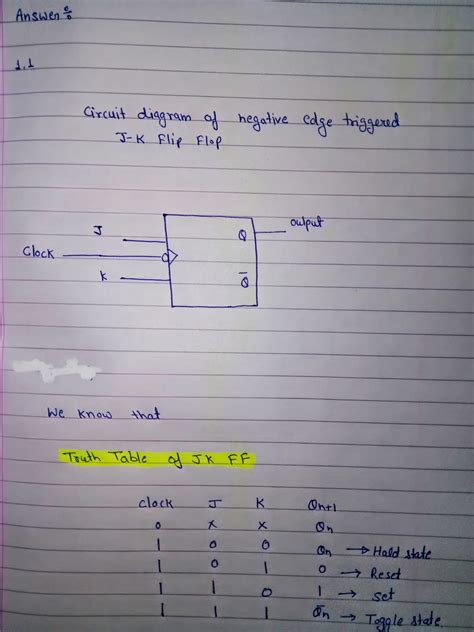 Answer:
1.1
Circuit diagram of negative edge triggered
J-K Flip Flop
J
Clock
K
Q
Q̅
output
We know that
Truth Table of JK FF
Clock J K Qn+1
0 x x Qn
1 0 0 Qn → Hold state
1 0 1 0 → Reset
1 1 0 1 → Set
1 1 1 Q̅n → Toggle state